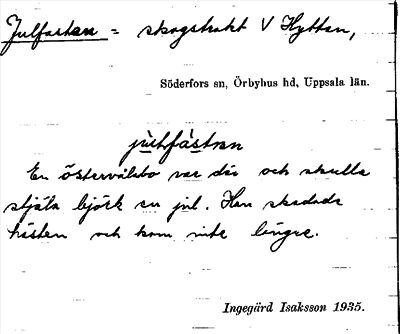 Julfastan = skogstrakt V Hyttan,
Söderfors sn, Örbyhus hd, Uppsala län.
julfástan
En östervålabo var där och skulle
stjäla björk en jul. Han skadade
hästen och kom inte längre.
Ingegärd Isaksson 1935.